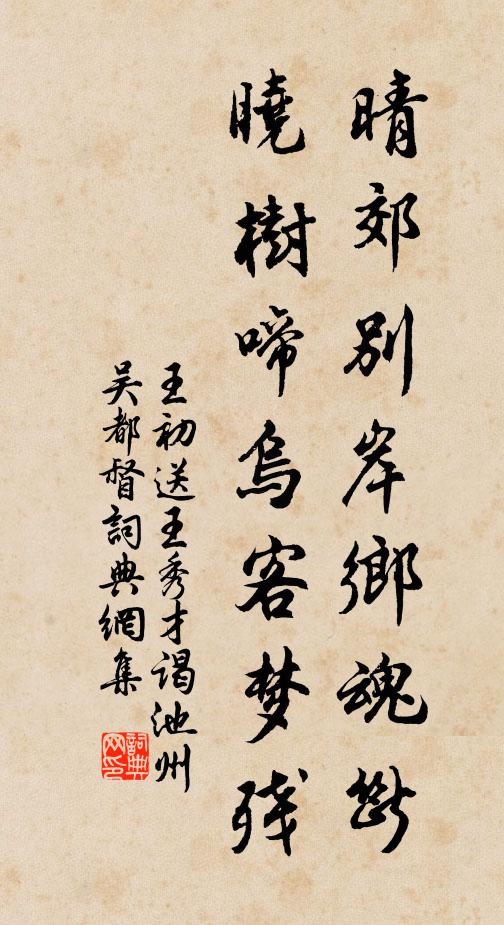 晴郊别岸鄉魂斷
曉樹啼烏客梦残
王初送王秀才谒池州
吴都督詞典網集
詞典
网印